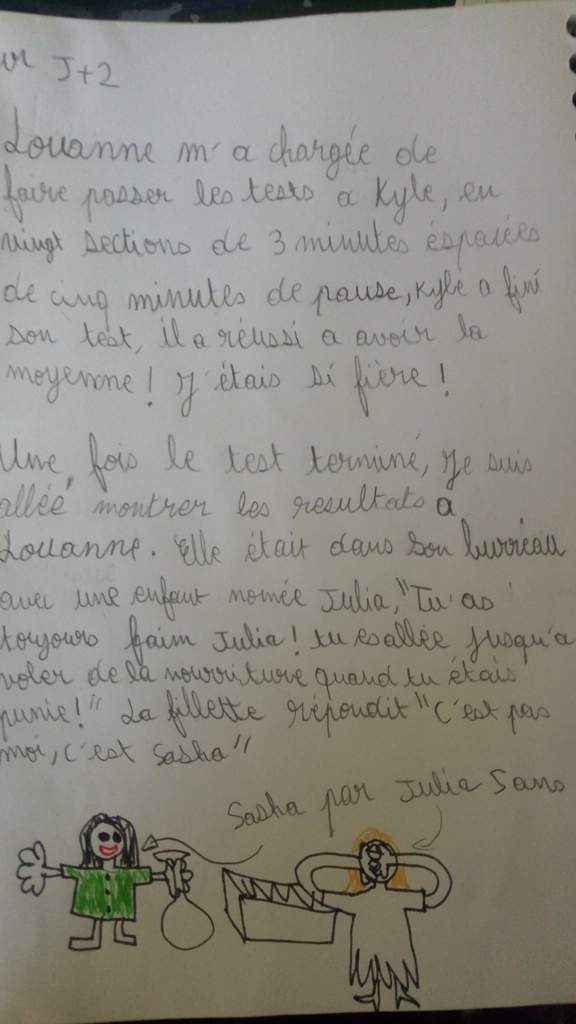 J+2
Louanne m'a chargée de
faire passer les tests a Kyle, en
vingt sections de 3 minutes éspacées
de cinq minutes de pause, Kyle a fini
son test, il a réussi a avoir la
moyenne! J'étais si fière!
Une fois le test terminé, Je suis
allée montrer les resultats a
Louanne. Elle était dans son burreau
avec une enfant nomée Julia, "Tu as
toujours faim Julia! tu es allée jusqu'a
voler de la nourriture quand tu étais
punie!" La fillette répondit "C'est pas
moi, c'est Sasha"
Sasha par Julia 5ans